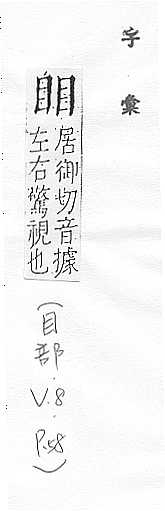 字彙
䀠
居御切音據
左右驚視也
(目部.
V.8.
P.58)